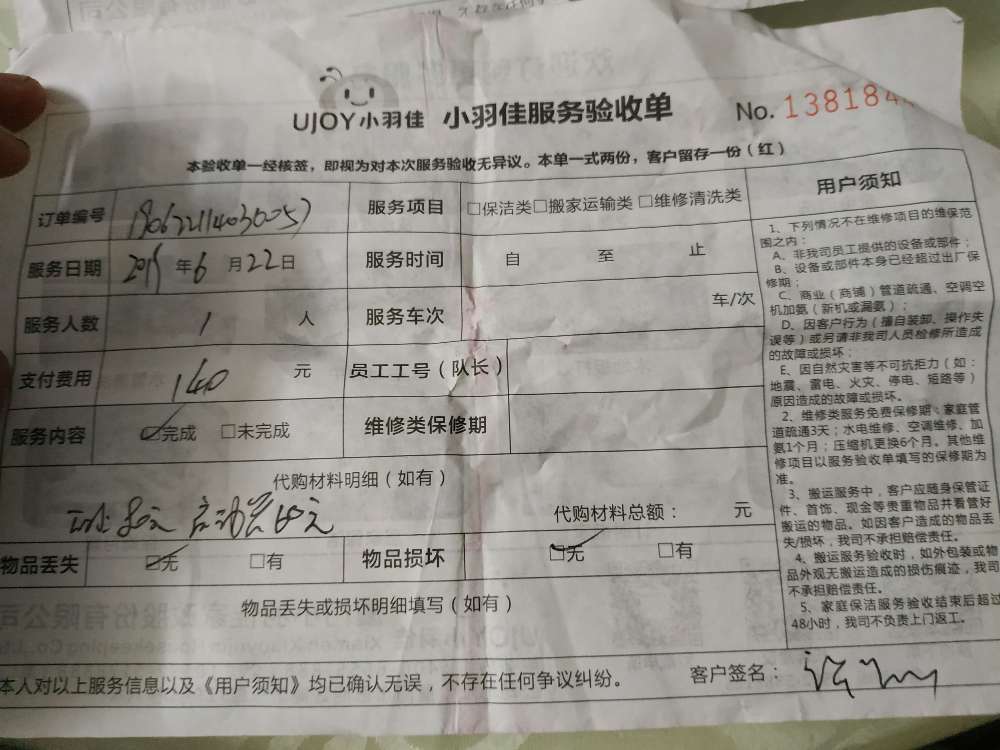 UJOY小羽佳 小羽佳服务验收单 No. 138184
本验收单一经核签，即视为对本次服务验收无异议。本单一式两份，客户留存一份（红）
订单编号 服务项目 □保洁类□搬家运输类 □维修清洗类
服务日期 年6月22日 服务时间 自 至 止
服务人数 1 人 服务车次 车/次
支付费用 140 元 员工工号（队长）
服务内容 ☑完成 □未完成 维修类保修期
代购材料明细（如有）
启动 元
代购材料总额： 元
物品丢失 ☑无 □有 物品损坏 ☑无 □有
物品丢失或损坏明细填写（如有）
本人对以上服务信息以及《用户须知》均已确认无误，不存在任何争议纠纷。 客户签名：
用户须知
1、下列情况不在维修项目的维保范
围之内：
A、非我司员工提供的设备或部件；
B、设备或部件本身已经超过出厂保
修期；
C、商业（商铺）管道疏通、空调空
机加氨（新机或漏氨）；
D、因客户行为（擅自装卸、操作失
误等）或另请非我司人员检修所造成
的故障或损坏；
E、因自然灾害等不可抗拒力（如：
地震、雷电、火灾、停电、短路等）
原因造成的故障或损坏。
2、维修类服务免费保修期：家庭管
道疏通3天；水电维修、空调维修、加
氨1个月；压缩机更换6个月。其他维
修项目以服务验收单填写的保修期为
准。
3、搬运服务中，客户应随身保管证
件、首饰、现金等贵重物品并看管好
搬运的物品。如因客户造成的物品丢
失/损坏，我司不承担赔偿责任。
4、搬运服务验收时，如外包装或物
品外观无搬运造成的损伤痕迹，我司
不承担赔偿责任。
5、家庭保洁服务验收结束后超过
48小时，我司不负责上门返工。